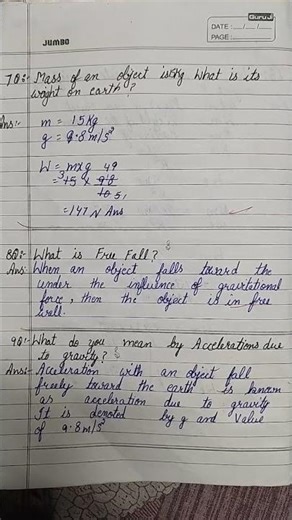 Guru Ji
JUMBO
DATE: __/__/__
PAGE:
7Q:- Mass of an object is 15kg What is its
weight on earth?
Ans:- m = 15 Kg
g = 9.8 m/s²
W = m x g 49
= 3 15 x 98
10 5,
= 147 N Ans
8Q:- What is Free Fall?
Ans: When an object falls toward the
under the influence of gravitational
force, then the object is in free
9Q:- What do you mean by Accelerations due
to gravity?
Ans:- Acceleration with an object fall
freely toward the earth is known
as acceleration due to gravity
It is denoted by g and Value
of 9.8 m/s²